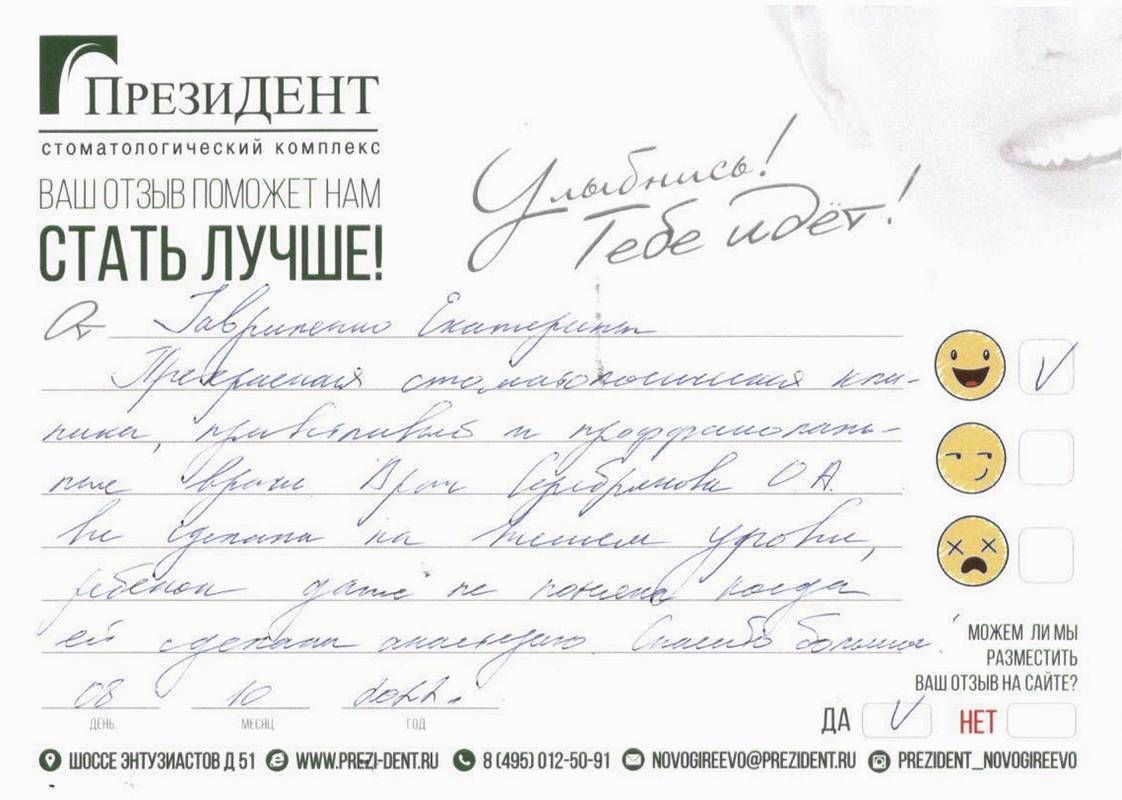 ПрезиДЕНТ
стоматологический комплекс
ВАШ ОТЗЫВ ПОМОЖЕТ НАМ
СТАТЬ ЛУЧШЕ!
Улыбнись!
Тебе идёт!
От Гавриленко Екатерина
Прекрасная стоматологическая кли-
ника, приветливый и
ные врачи Врач Серебрякова О.А.
все сделала на высшем уровне,
ребенок даже не поняла когда
ей сделали анестезию. Спасибо большое!
08 10 2022.
ДЕНЬ МЕСЯЦ ГОД
МОЖЕМ ЛИ МЫ
РАЗМЕСТИТЬ
ВАШ ОТЗЫВ НА САЙТЕ?
ДА НЕТ
ШОССЕ ЭНТУЗИАСТОВ Д 51 WWW.PREZI-DENT.RU 8 (495) 012-50-91 NOVOGIREEVO@PREZIDENT.RU PREZIDENT_NOVOGIREEVO